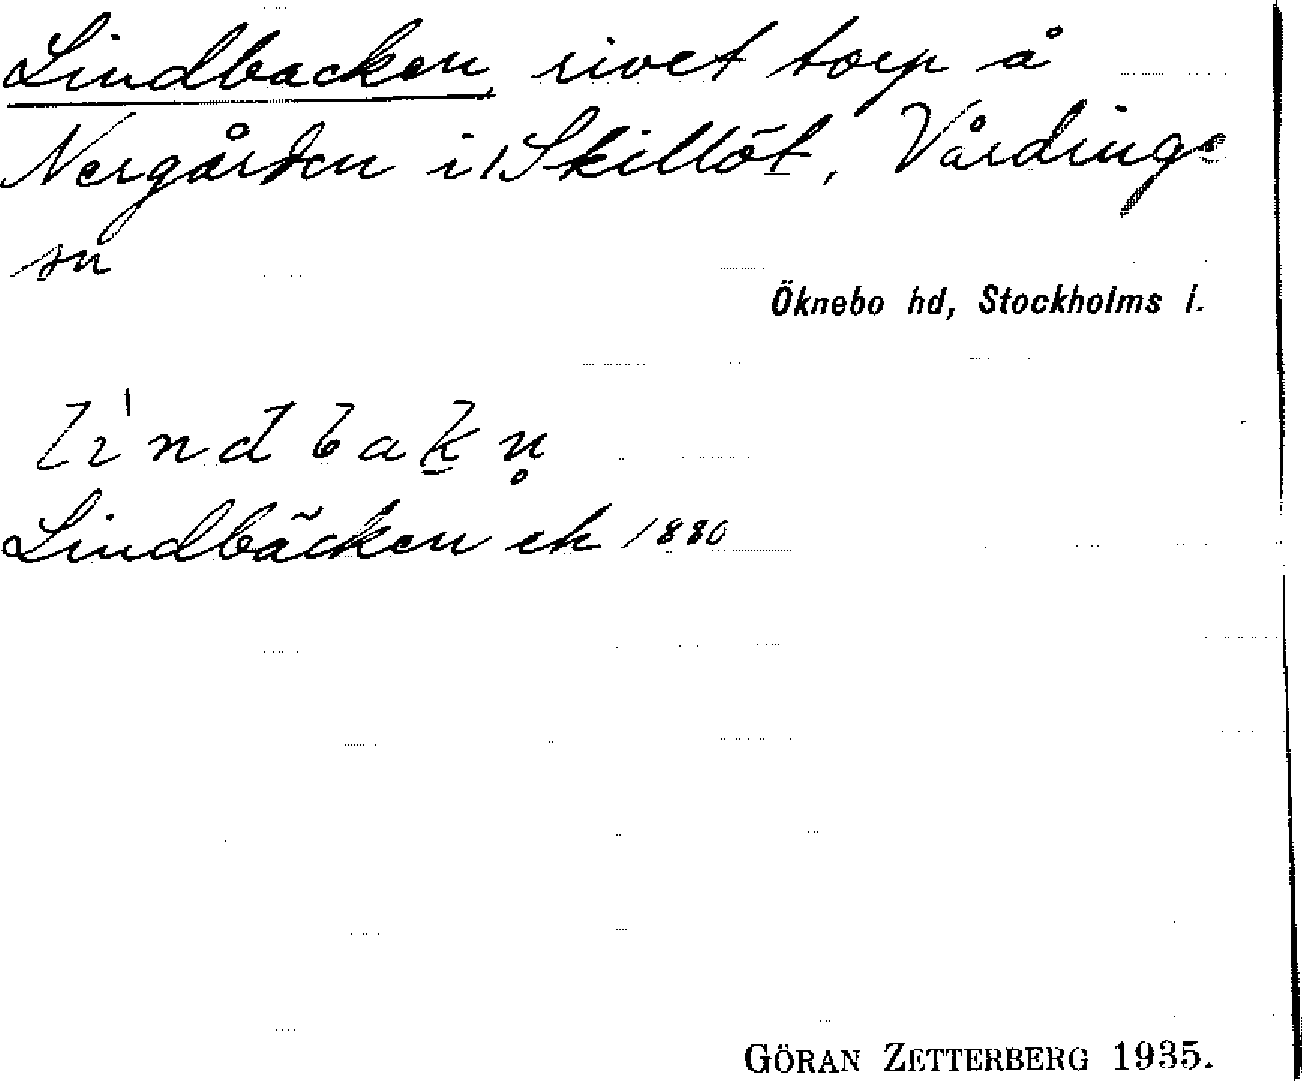 Lindbacken, rivet torp å
Nergården i Skillöt, Vårdinge
sn
Öknebo hd, Stockholms l.
li'ndbak̲n̥
Lindbäcken ek 1880
GÖRAN ZETTERBERG 1935.